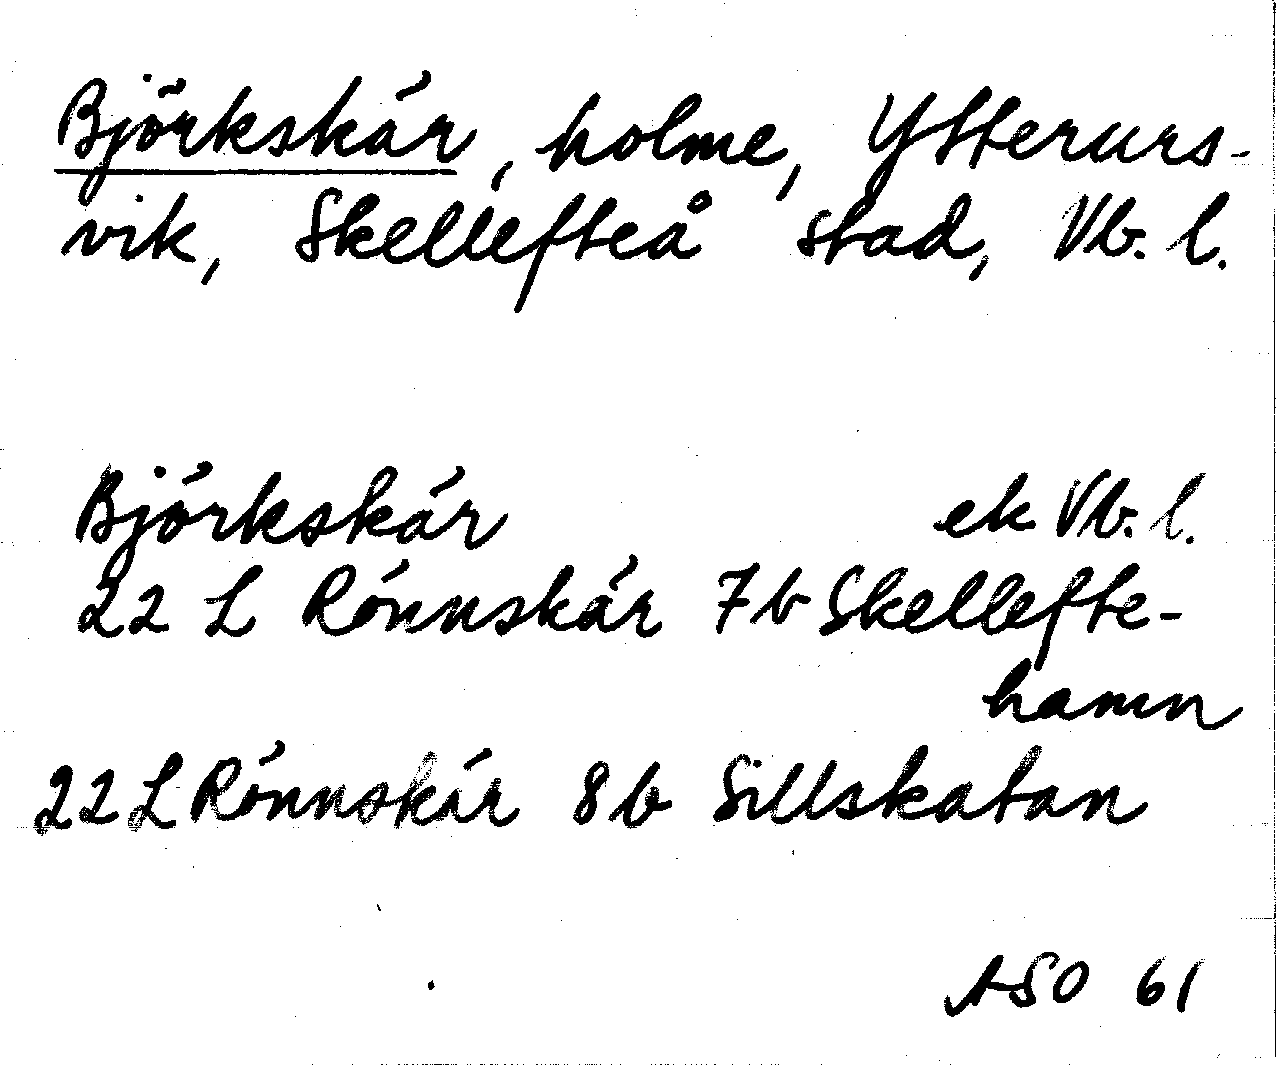 Björkskär, holme, Ytterurs-
vik, Skellefteå stad, Vb. l.
Björkskär ek Vb. l.
22 L Rönnskär 7b Skellefte-
hamn
22 L Rönnskär 8b Sillskatan
ASO 61